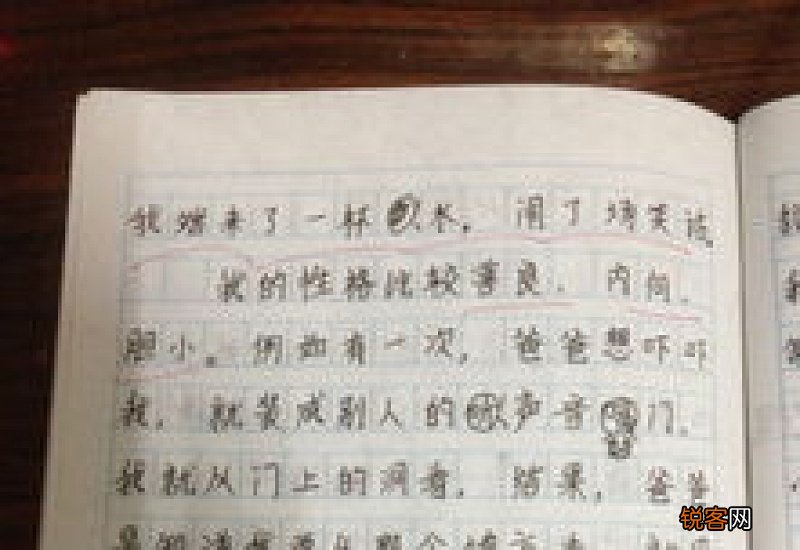 我端来了一杯水。闹了场笑话。
我的性格比较善良、内向、
胆小。例如有一次，爸爸想吓吓
我，就装成别人的声音门。
我就从门上的洞看，结果，爸爸
锐客网